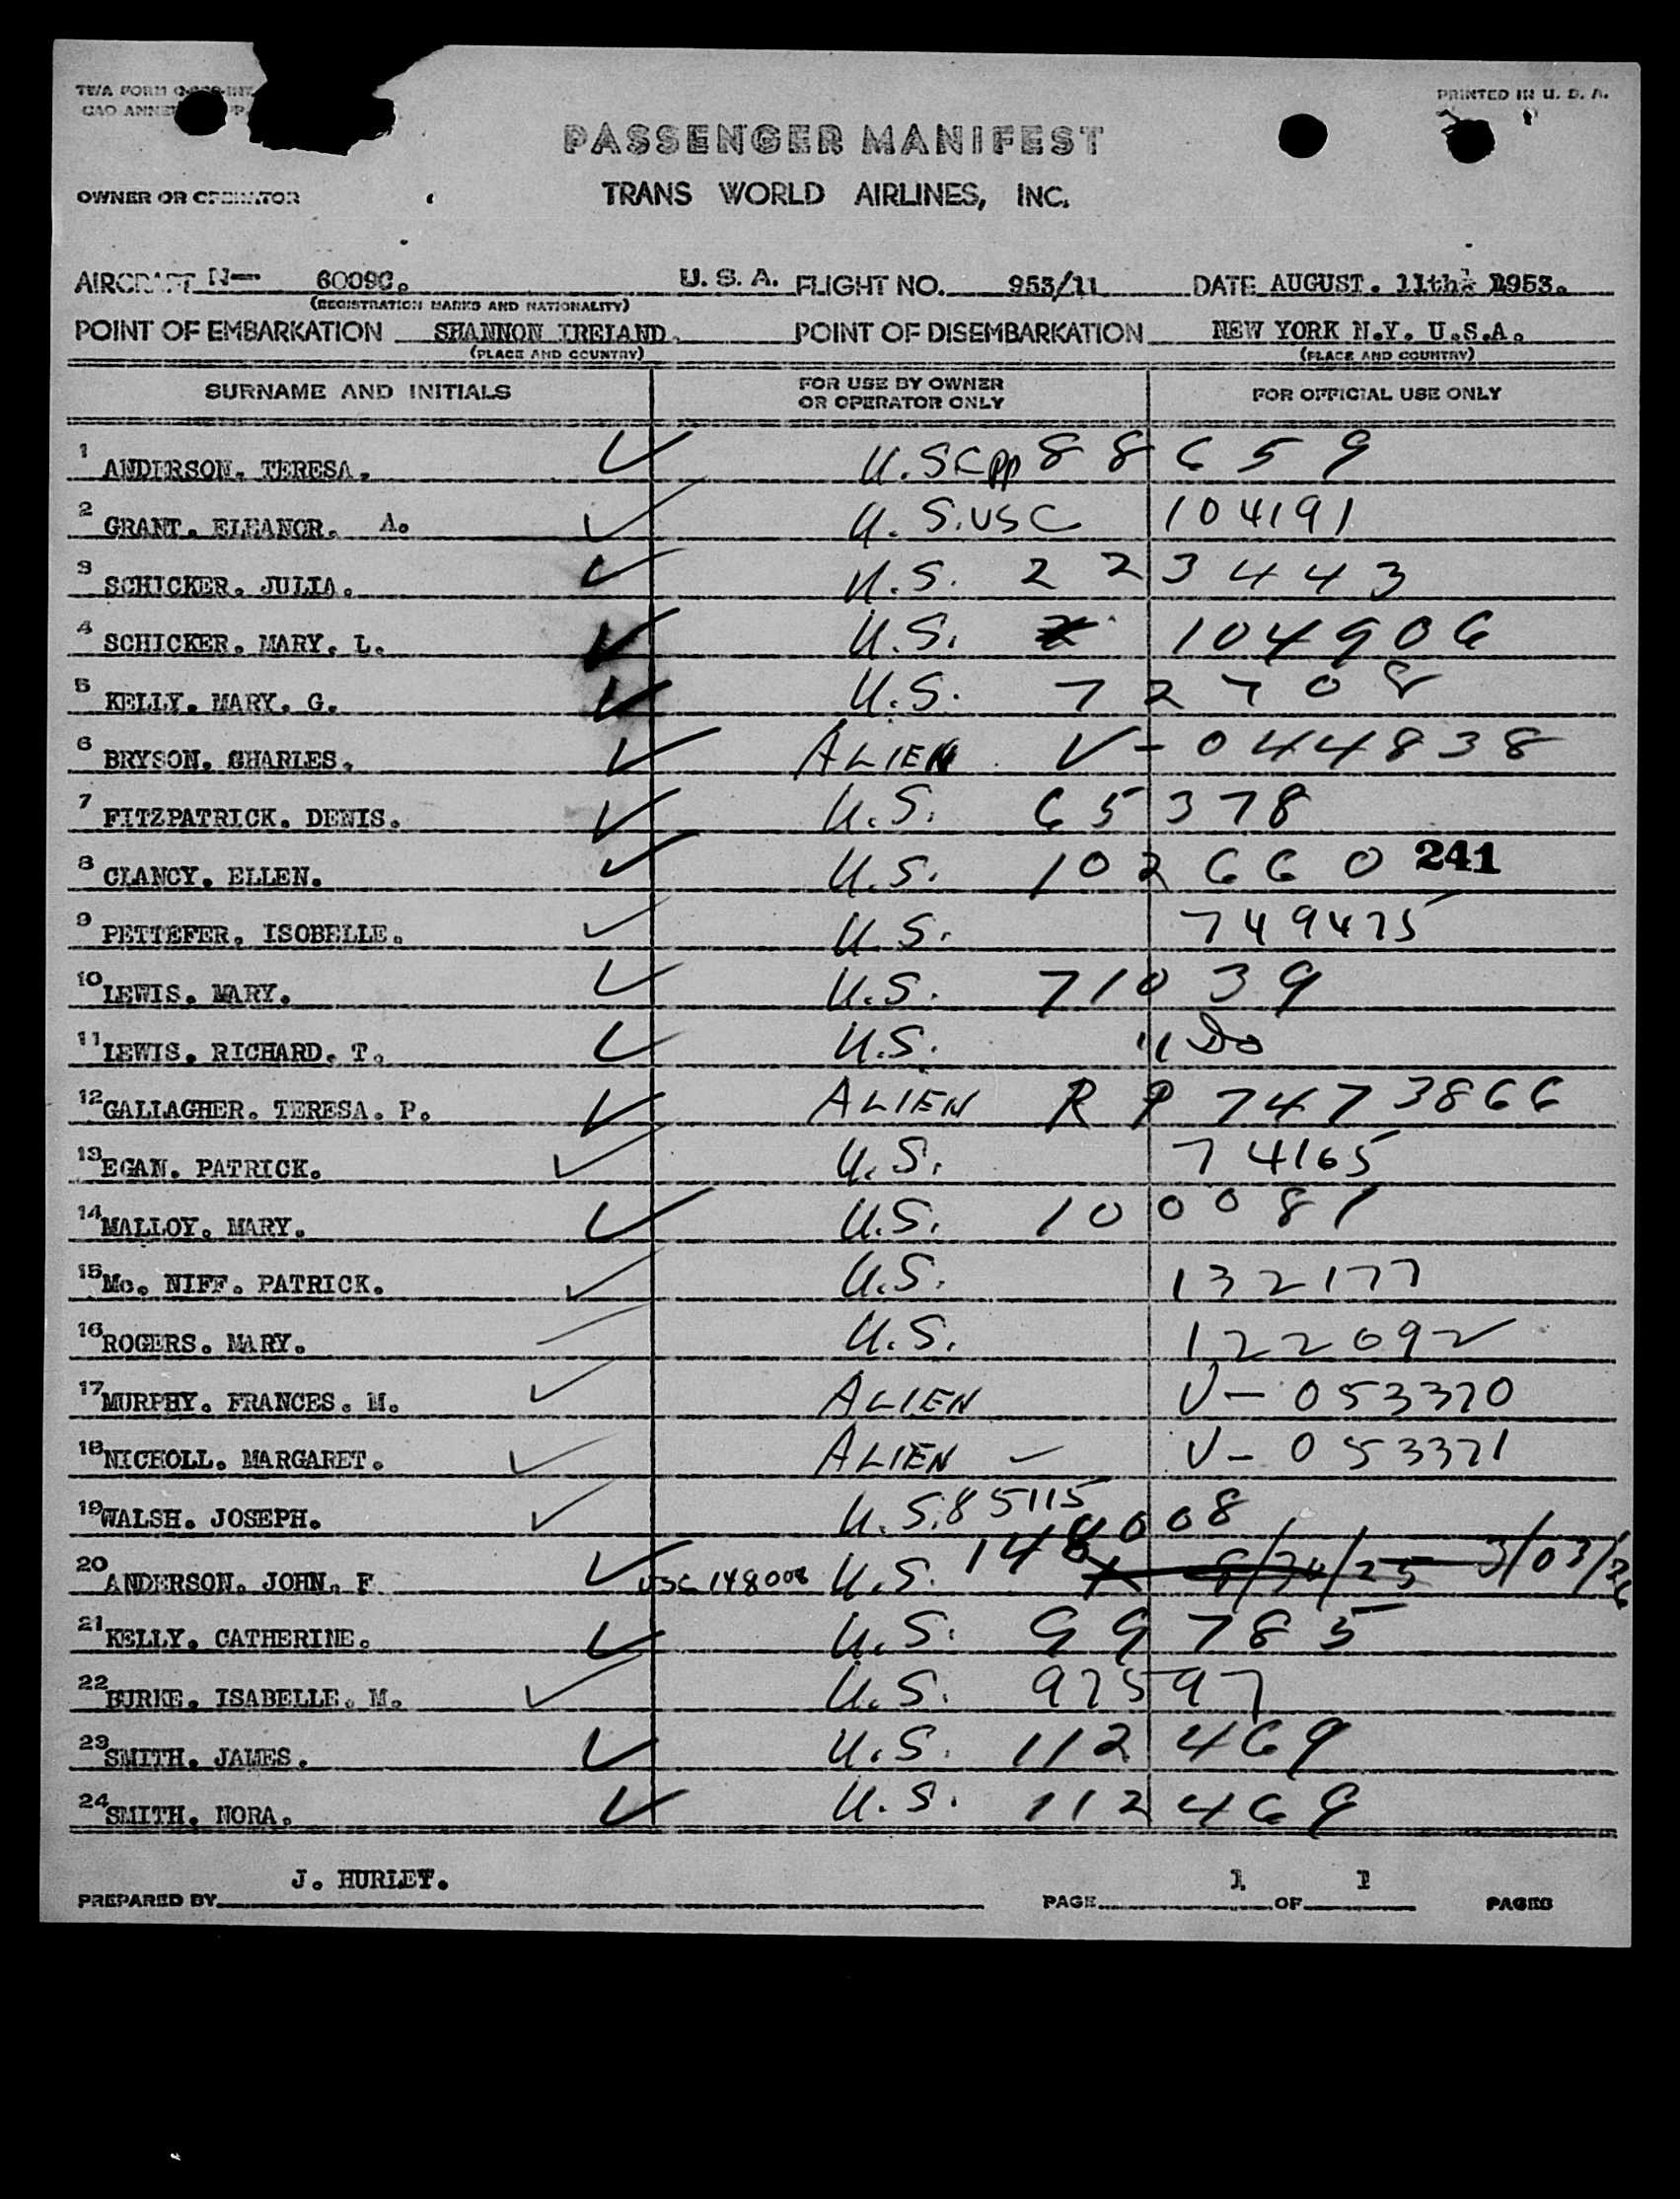 TWA FORM
CAO ANNEX
PRINTED IN U. S. A.
PASSENGER MANIFEST
OWNER OR OPERATOR
TRANS WORLD AIRLINES, INC.
AIRCRAFT N- 6009C. U. S. A. FLIGHT NO. 953/11 DATE AUGUST. 11th 1953.
(REGISTRATION MARKS AND NATIONALITY)
POINT OF EMBARKATION SHANNON IRELAND. POINT OF DISEMBARKATION NEW YORK N.Y. U.S.A.
(PLACE AND COUNTRY) (PLACE AND COUNTRY)
SURNAME AND INITIALS FOR USE BY OWNER OR OPERATOR ONLY FOR OFFICIAL USE ONLY
1 ANDERSON. TERESA. U.SC pp 88659
2 GRANT. ELEANOR. A. U.S. USC 104191
3 SCHICKER. JULIA. U.S. 223443
4 SCHICKER. MARY. L. U.S. 104906
5 KELLY. MARY. G. U.S. 72708
6 BRYSON. CHARLES. ALIEN V-044838
7 FITZPATRICK. DENIS. U.S. 65378
8 CLANCY. ELLEN. U.S. 102660 241
9 PETTEFER. ISOBELLE. U.S. 749475
10 LEWIS. MARY. U.S. 71039
11 LEWIS. RICHARD. T. U.S. " Do
12 GALLAGHER. TERESA. P. ALIEN R P 7473866
13 EGAN. PATRICK. U.S. 74165
14 MALLOY. MARY. U.S. 100081
15 Mc. NIFF. PATRICK. U.S. 132177
16 ROGERS. MARY. U.S. 122092
17 MURPHY. FRANCES. M. ALIEN V-053370
18 NICHOLL. MARGARET. ALIEN - V-053371
19 WALSH. JOSEPH. U.S. 85115
20 ANDERSON. JOHN. F USC 148008 U.S. 148008 3/03/26
21 KELLY. CATHERINE. U.S. 99785
22 BURKE. ISABELLE. M. U.S. 97597
23 SMITH. JAMES. U.S. 112469
24 SMITH. NORA. U.S. 112469
PREPARED BY J. HURLEY. PAGE 1 OF 1 PAGES